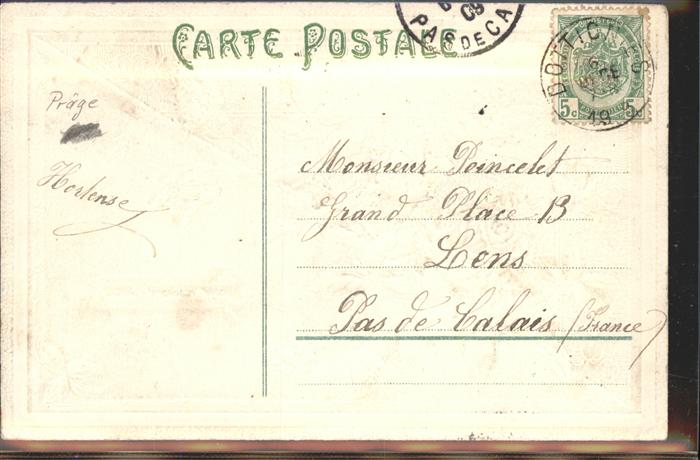 CARTE POSTALE
09
PAS DE CA
DOTTIGNIES
19
5c 5c
Präge
Hortense
Monsieur Poincelet
Grand Place 13
Lens
Pas de Calais (France)